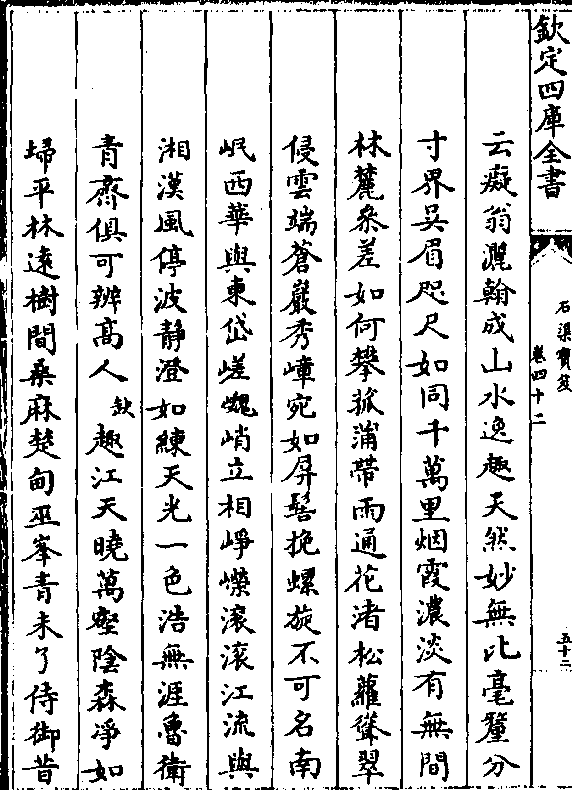 欽定四庫全書
石渠寶笈
卷四十二
五十二
云癡翁灑翰成山水逸趣天然妙無比毫釐分
寸界吳眉咫尺如同千萬里烟霞濃淡有無間
林麓叅差如何攀菰蒲帶雨通花渚松蘿聳翠
侵雲端蒼巖秀嶂宛如屏髻挽螺旋不可名南
岷西華與東岱嵯峗峭立相崢嶸滚滚江流與
湘漢風停波静澄如練天光一色浩無涯魯衛
青齊俱可辨髙人缺趣江天曉萬壑陰森凈如
埽平林遠樹間桑麻楚甸巫峯青未了侍御昔